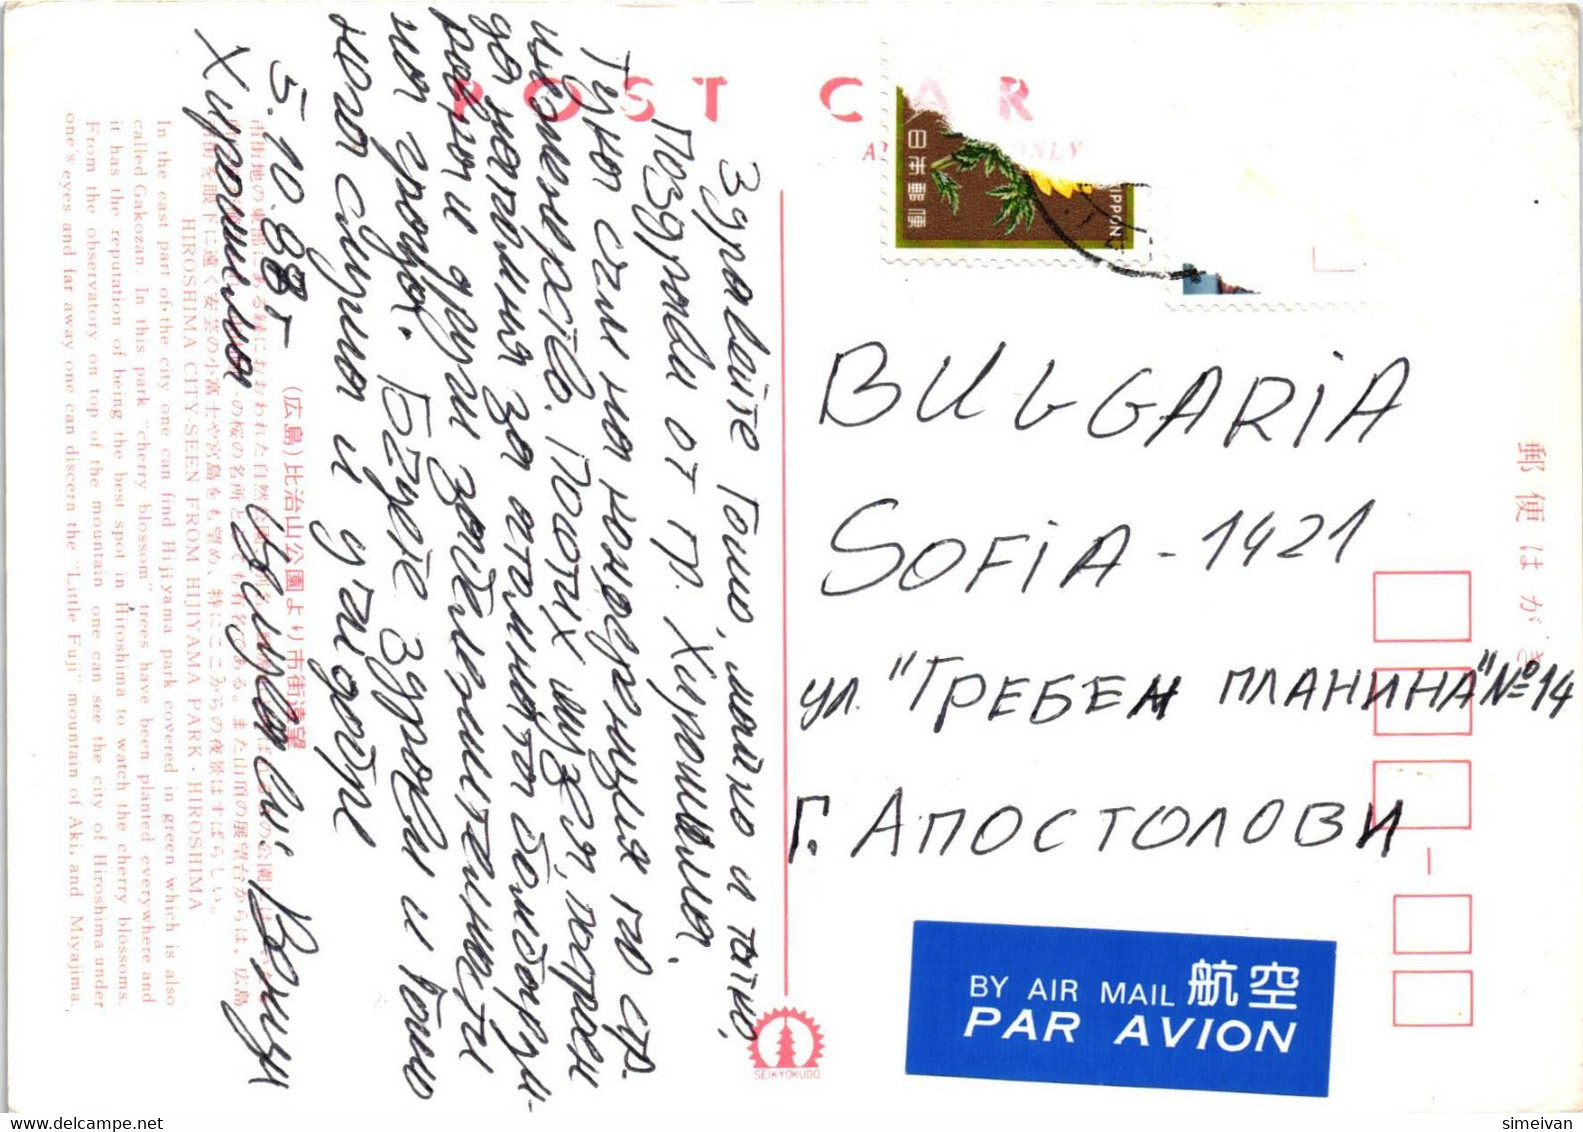 POST CAR
ONLY
日本郵便
NIPPON
Здравейте Гошо, майко и татко,
Поздрави от гр. Хирошима.
Тук съм на конференция по стр.
инженерство. Посетих музея, построен
да напомня за атомната бомбарди-
ровка и други забележителности
на града. Бъдете здрави и Гошо
нека слуша и
5.10.88г
Хирошима
Ваш
BULGARIA
SOFIA - 1421
ул. "ГРЕБЕН ПЛАНИНА" №14
Г. АПОСТОЛОВИ
BY AIR MAIL 航空
PAR AVION
郵便はがき
SEIKYOKUDO
(広島)比治山公園より市街遠望
HIROSHIMA CITY-SEEN FROM HIJIYAMA PARK・HIROSHIMA
In the east part of the city one can find Hijiyama park covered in green which is also
called Gakozan. In this park "cherry blossom" trees have been planted everywhere and
it has the reputation of being the best spot in Hiroshima to watch the cherry blossoms.
From the observatory on top of the mountain one can see the city of Hiroshima under
one's eyes and far away one can discern the "Little Fuji" mountain of Aki, and Miyajima.
www.delcampe.net
simeivan